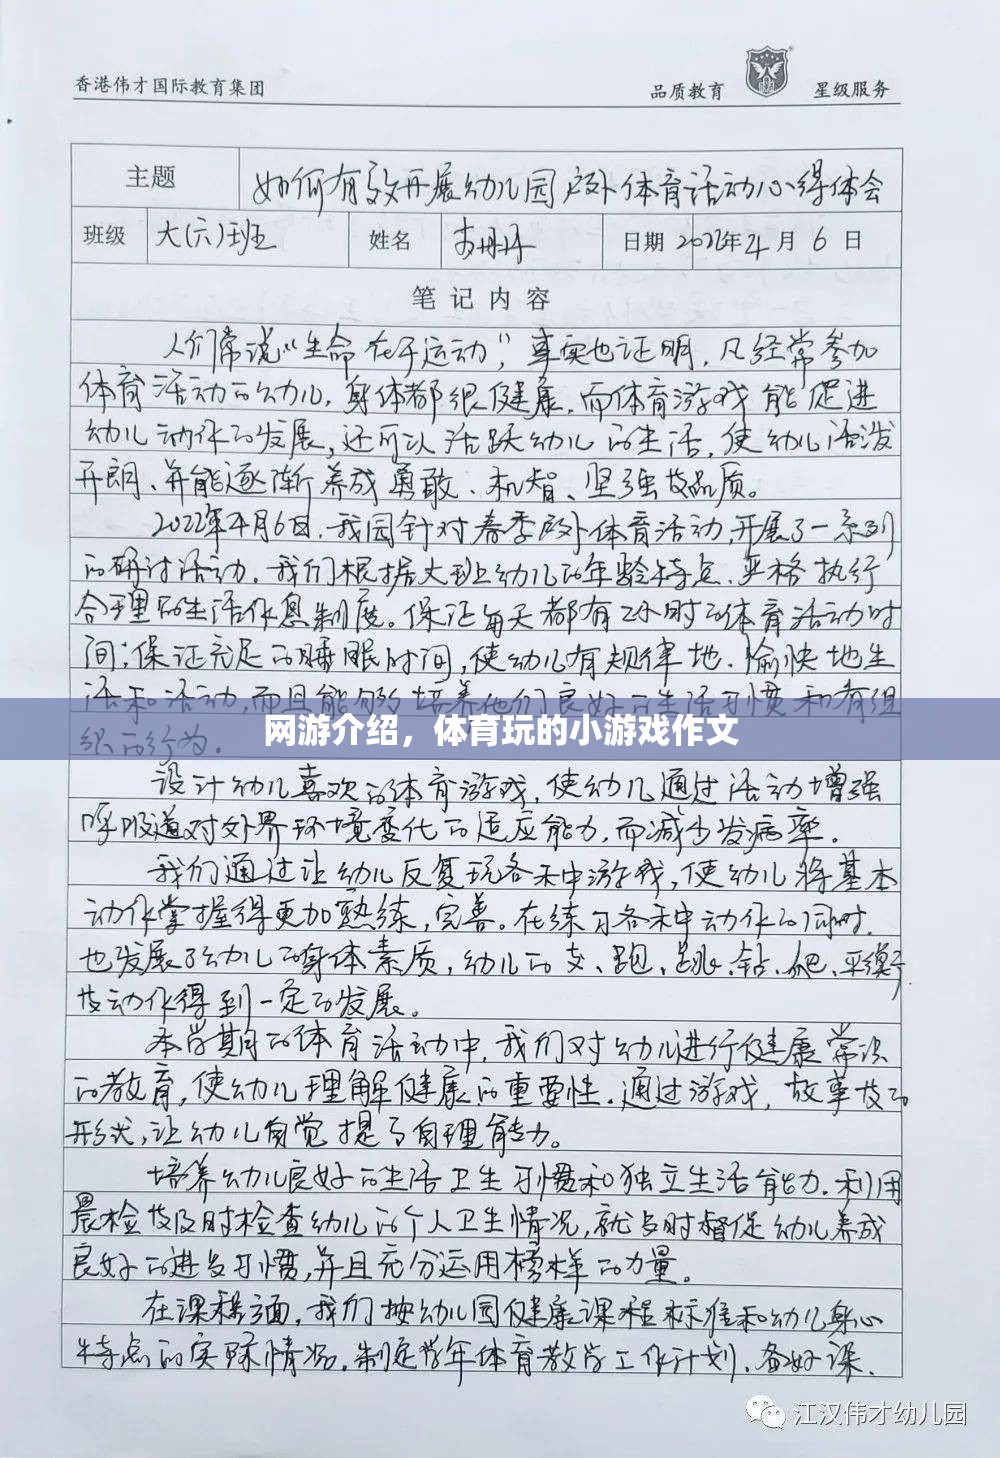 香港伟才国际教育集团 品质教育 星级服务
主题 如何有效开展幼儿园户外体育活动心得体会
班级 大(六)班 姓名 日期 2022年4月6日
笔记内容
人们常说“生命在于运动”，事实也证明，凡经常参加
体育活动的幼儿，身体都很健康，而体育游戏能促进
幼儿动作的发展，还可以活跃幼儿的生活，使幼儿活泼
开朗、并能逐渐养成勇敢、机智、坚强等品质。
2022年4月6日，我园针对春季户外体育活动，开展了一系列
的研讨活动。我们根据大班幼儿的年龄特点，严格执行
合理的生活作息制度。保证每天都有2小时的体育活动时
间；保证充足的睡眠时间，使幼儿有规律地、愉快地生
活和活动，而且能够培养他们良好的生活习惯和有组
织的行为。
网游介绍，体育玩的小游戏作文
设计幼儿喜欢的体育游戏，使幼儿通过活动增强
呼吸道对外界环境变化的适应能力，而减少发病率。
我们通过让幼儿反复玩各种游戏，使幼儿将基本
动作掌握得更加熟练，完善。在练习各种动作的同时，
也发展了幼儿的身体素质，幼儿的走、跑、跳、钻、爬、平衡
等动作得到一定的发展。
本学期的体育活动中，我们对幼儿进行健康常识
的教育，使幼儿理解健康的重要性。通过游戏，故事等的
形式，让幼儿自觉提了自理能力。
培养幼儿良好的生活卫生习惯和独立生活能力。利用
晨检等及时检查幼儿的个人卫生情况，就与时督促幼儿养成
良好的进与习惯，并且充分运用榜样的力量。
在课程方面，我们按幼儿园健康课程标准和幼儿身心
特点的实际情况，制定学年体育教学工作计划，备好课，
江汉伟才幼儿园